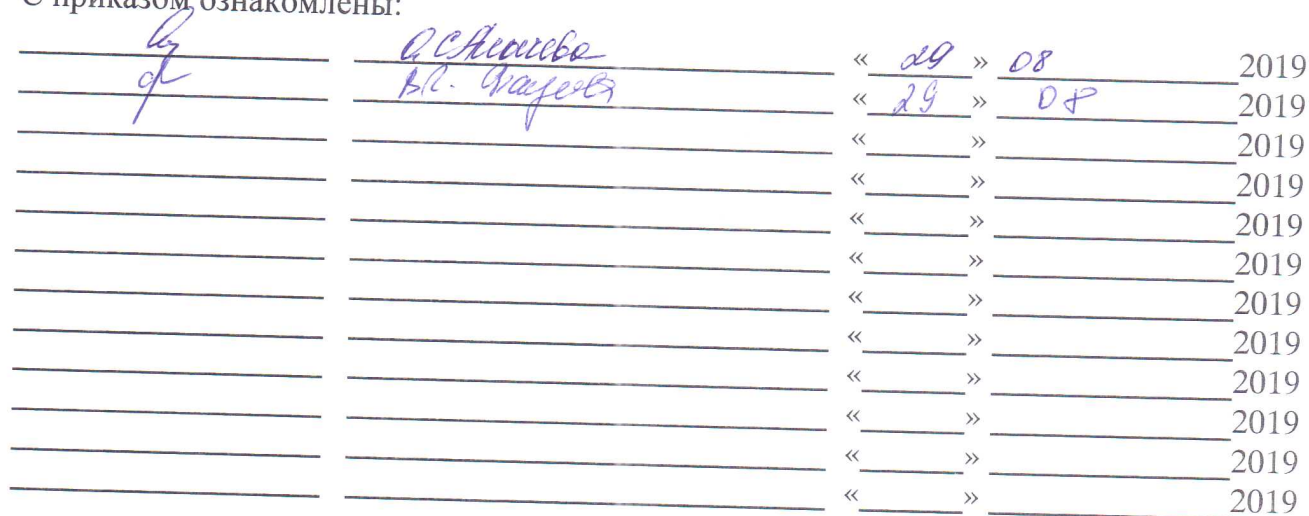 С приказом ознакомлены:
О.С. « 29 » 08 2019
В.С. « 29 » 08 2019
«_____» _______________2019
«_____» _______________2019
«_____» _______________2019
«_____» _______________2019
«_____» _______________2019
«_____» _______________2019
«_____» _______________2019
«_____» _______________2019
«_____» _______________2019
«_____» _______________2019